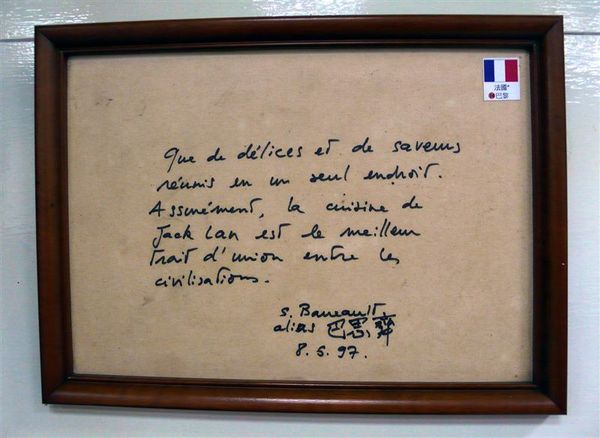 法國
巴黎
Que de délices et de saveurs
réunis en un seul endroit.
Assurément, la cuisine de
Jack Lan est le meilleur
trait d'union entre les
civilisations.
S. Barreault,
alias 巴思齊
8.5.97.